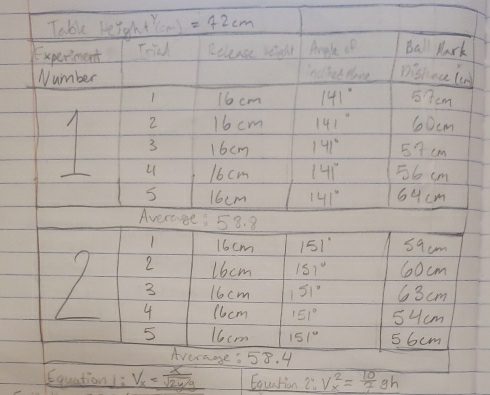 Table Height (cm) = 72cm
Experiment Number Trial Release Height Angle of Inclined Plane Ball Mark Distance (cm)
1
1 16cm 141° 57cm
2 16cm 141° 60cm
3 16cm 141° 57cm
4 16cm 141° 56cm
5 16cm 141° 64cm
Average: 58.8
2
1 16cm 151° 59cm
2 16cm 151° 60cm
3 16cm 151° 63cm
4 16cm 151° 54cm
5 16cm 151° 56cm
Average: 58.4
Equation 1: Vx = x/√2y/g Equation 2: Vx² = 10/7 gh